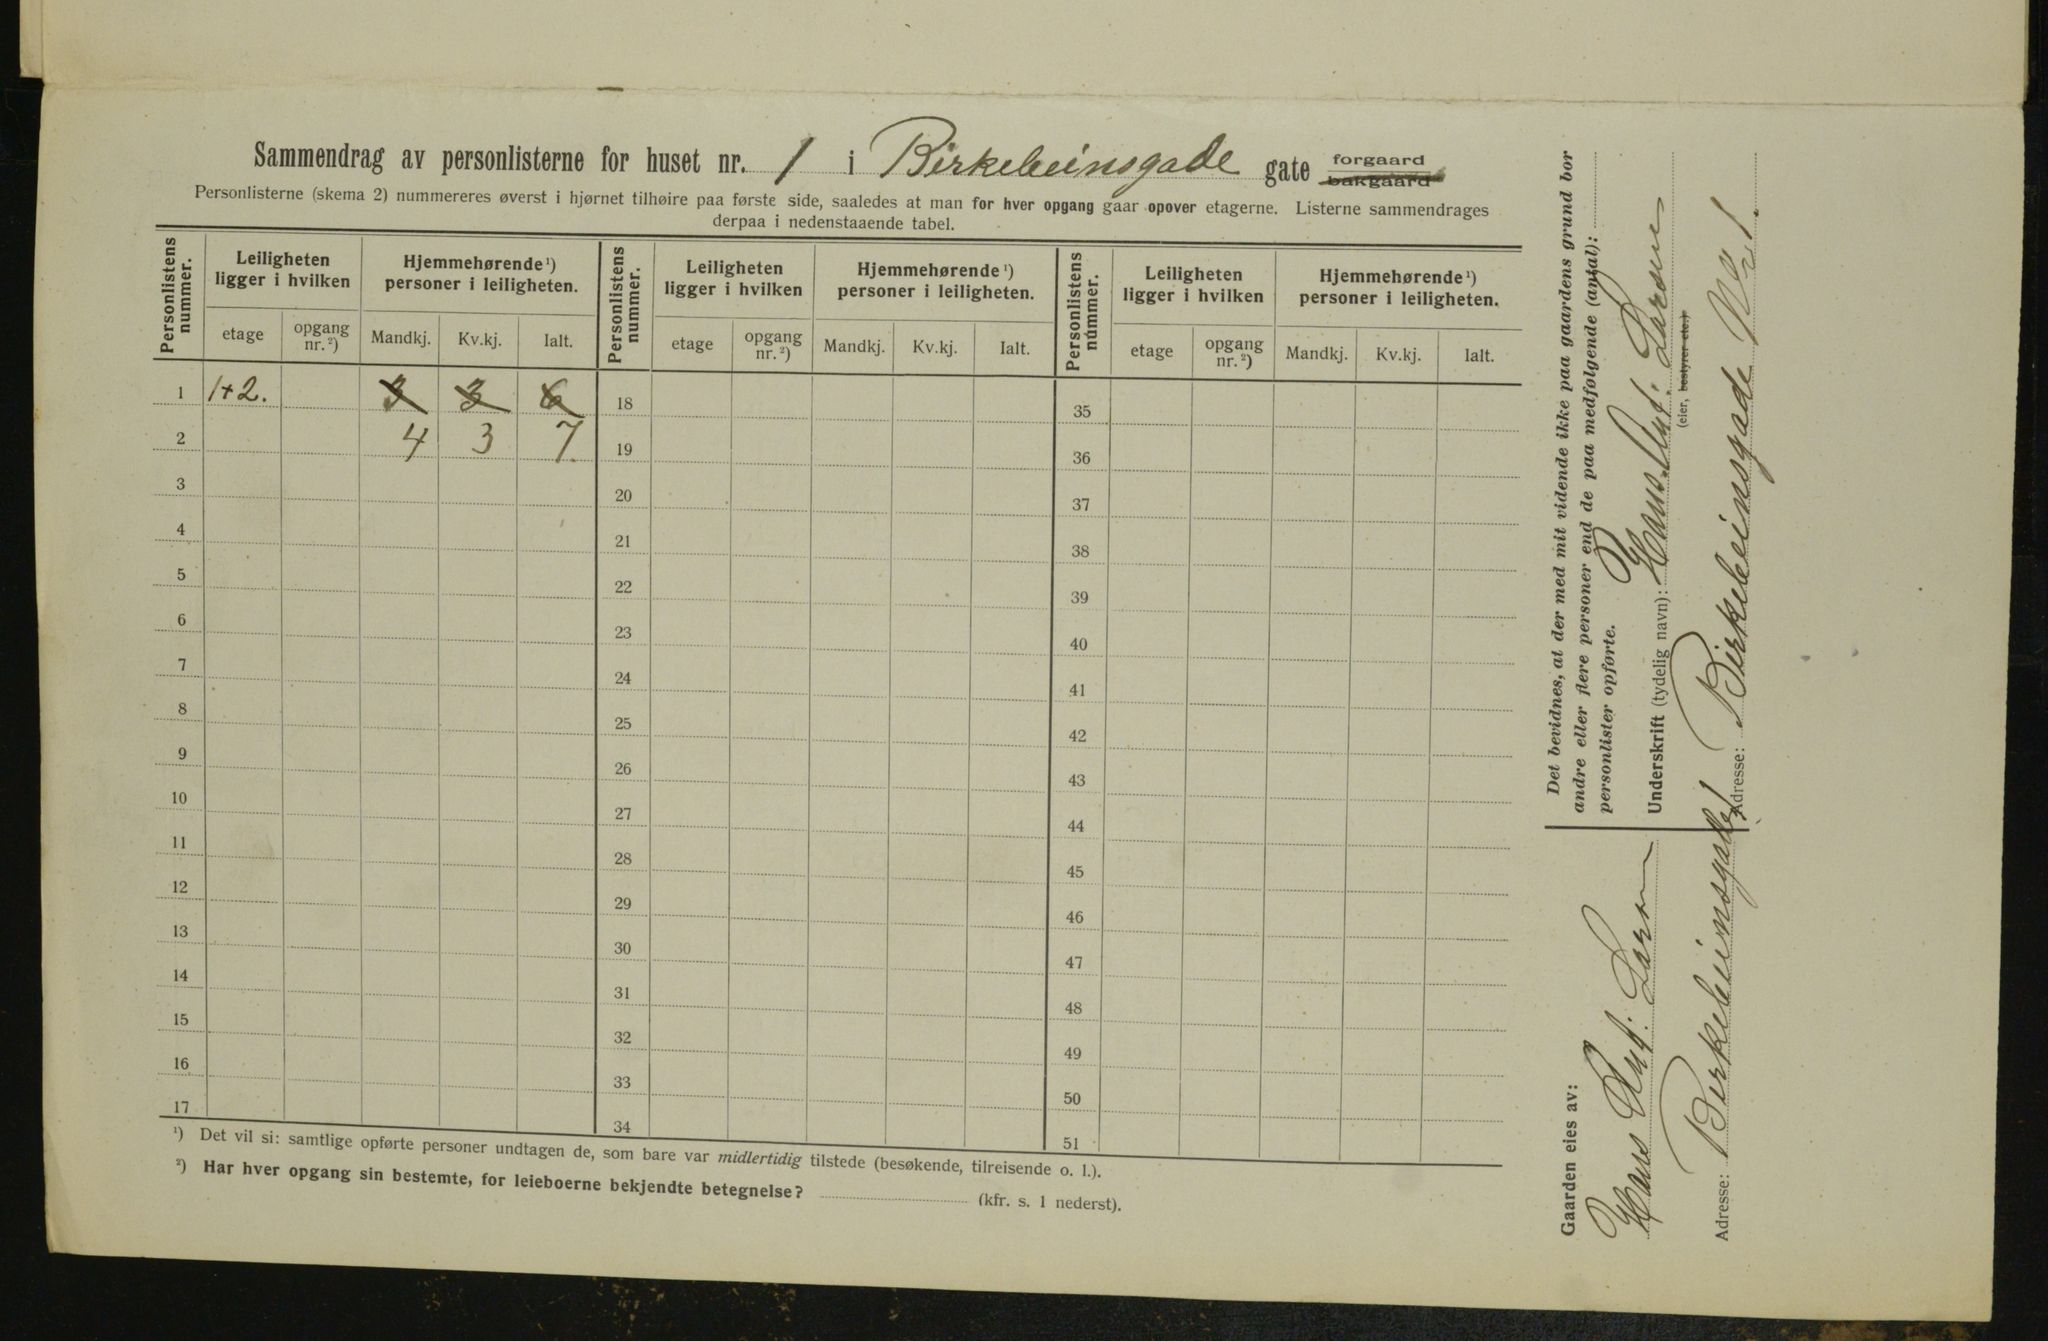 Sammendrag av personlisterne for huset nr. 1 i Birkebeinsgade gate forgaard bakgaard
Personlisterne (skema 2) nummereres øverst i hjørnet tilhøire paa første side, saaledes at man for hver opgang gaar opover etagerne. Listerne sammendrages
derpaa i nedenstaaende tabel.
Personlistens nummer. Leiligheten ligger i hvilken Hjemmehørende ¹) personer i leiligheten. Personlistens nummer. Leiligheten ligger i hvilken Hjemmehørende ¹) personer i leiligheten. Personlistens nummer. Leiligheten ligger i hvilken Hjemmehørende ¹) personer i leiligheten.
etage opgang nr. ²) Mandkj. Kv.kj. Ialt. etage opgang nr. ²) Mandkj. Kv.kj. Ialt. etage opgang nr. ²) Mandkj. Kv.kj. Ialt.
1 1+2. 3 3 6 18 35
2 4 3 7. 19 36
3 20 37
4 21 38
5 22 39
6 23 40
7 24 41
8 25 42
9 26 43
10 27 44
11 28 45
12 29 46
13 30 47
14 31 48
15 32 49
16 33 50
17 34 51
¹) Det vil si: samtlige opførte personer undtagen de, som bare var midlertidig tilstede (besøkende, tilreisende o. l.).
²) Har hver opgang sin bestemte, for leieboerne bekjendte betegnelse? (kfr. s. 1 nederst).
Det bevidnes, at der med mit vidende ikke paa gaardens grund bor
andre eller flere personer end de paa medfølgende (antal):
personlister opførte.
Underskrift (tydelig navn): Hans Ant. Larsen
(eier, bestyrer etc.)
Adresse: Birkebeinsgade No 1.
Gaarden eies av:
Hans Ant. Larsen
Adresse: Birkebeinsgade 1